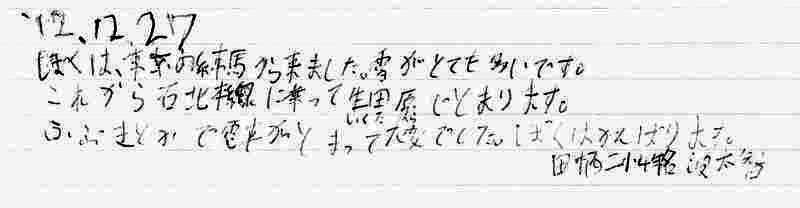 '12.12.27
ぼくは、東京の練馬から来ました。雪がとても多いです。
これから石北本線に乗って生田原でとまります。
いくたはら
ふぶきとかで電車がとまって大変でした。ぼくはがんばります。
田柄二小4